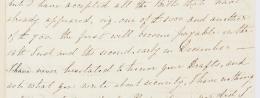 but I have accepted all the Bills that have
already appeared, viz. one of
of you the first will become payable in the
and the second early in December —
I have never hesitated to honor your Drafts, and
ask what you wrote about security, I have nothing